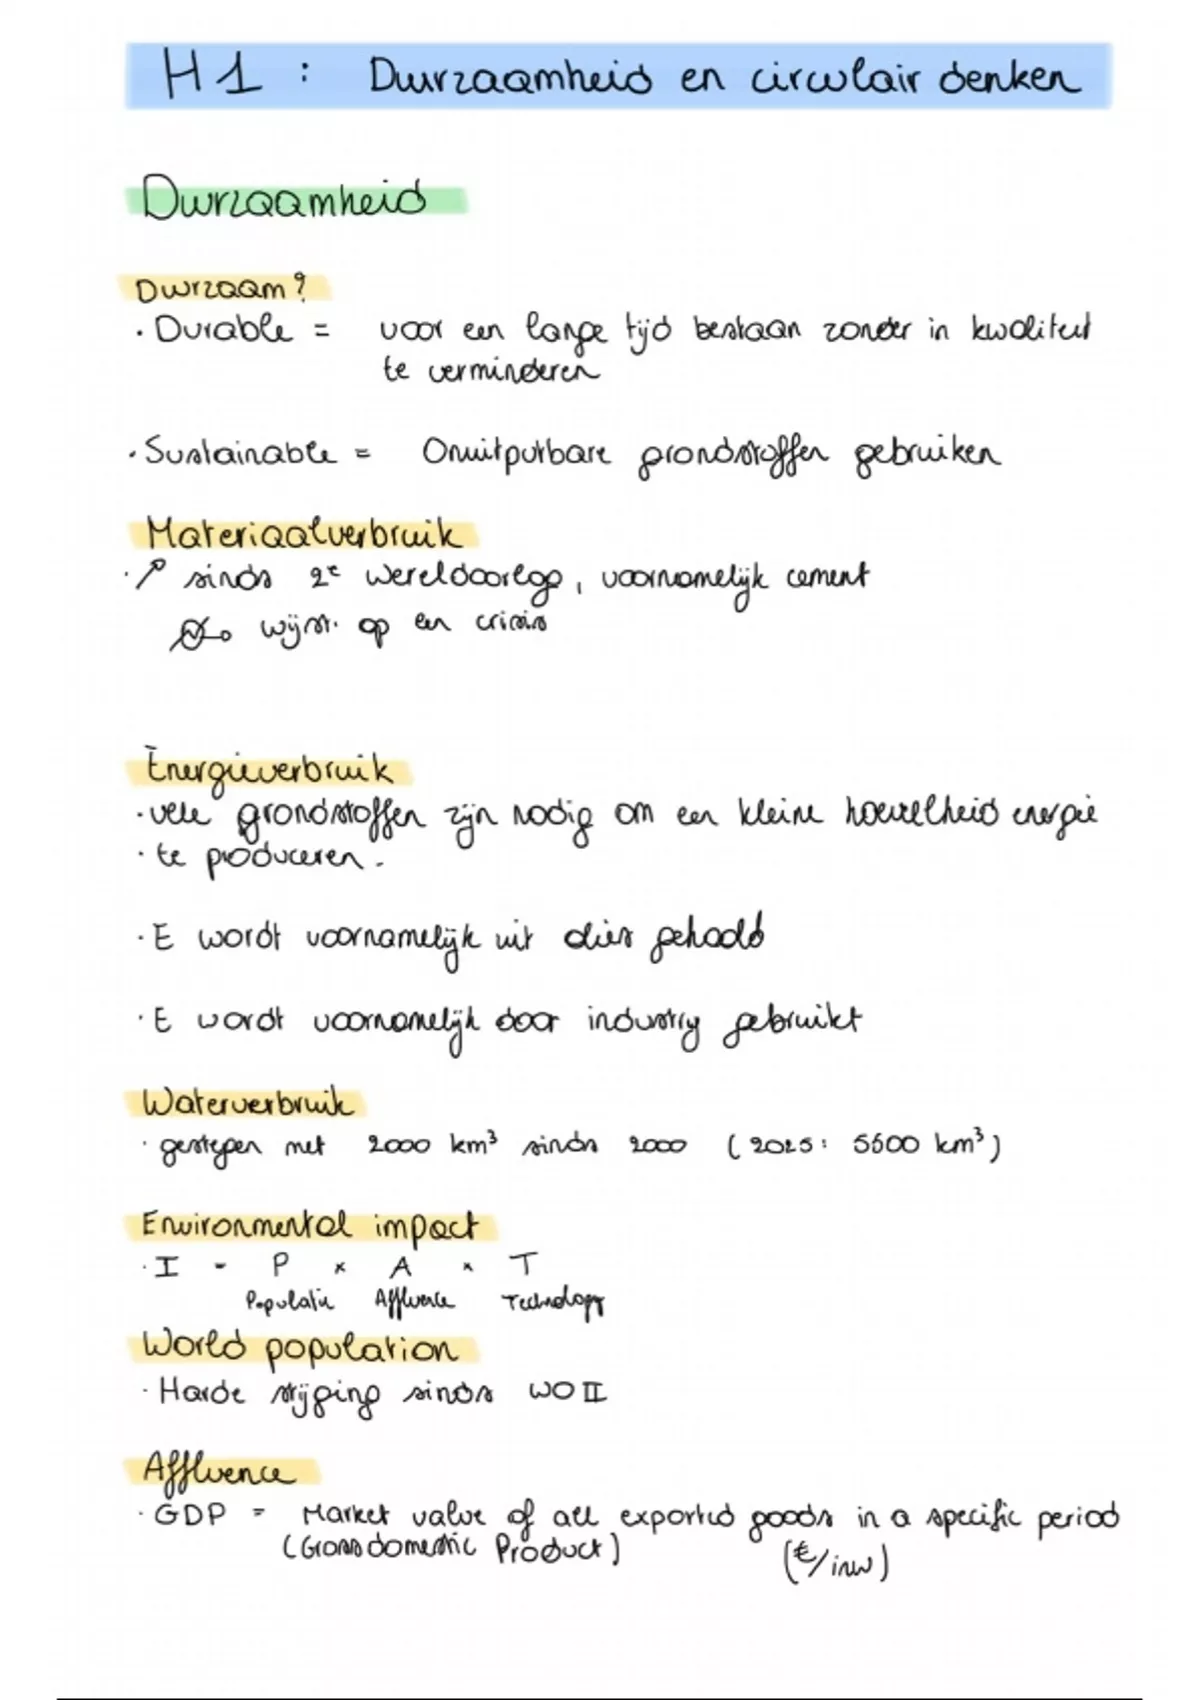 H1 : Duurzaamheid en circulair denken
Duurzaamheid
Duurzaam?
· Durable = voor een lange tijd bestaan zonder in kwaliteit
te verminderen
· Sustainable = Onuitputbare grondstoffen gebruiken
Materiaalverbruik
· ↗ sinds 2e wereldoorlog, voornamelijk cement
↳ wijst op een crisis
Energieverbruik
· vele grondstoffen zijn nodig om een kleine hoeveelheid energie
· te produceren.
· E wordt voornamelijk uit olies gehaald
· E wordt voornamelijk door industry gebruikt
Waterverbruik
· gestegen met 2000 km³ sinds 2000 (2025: 5500 km³)
Environmental impact
· I = P × A × T
Populatie Affluence Technology
World population
· Harde stijging sinds WO II
Affluence
· GDP = Market value of all exported goods in a specific period
(Gross domestic Product) (€/inw)